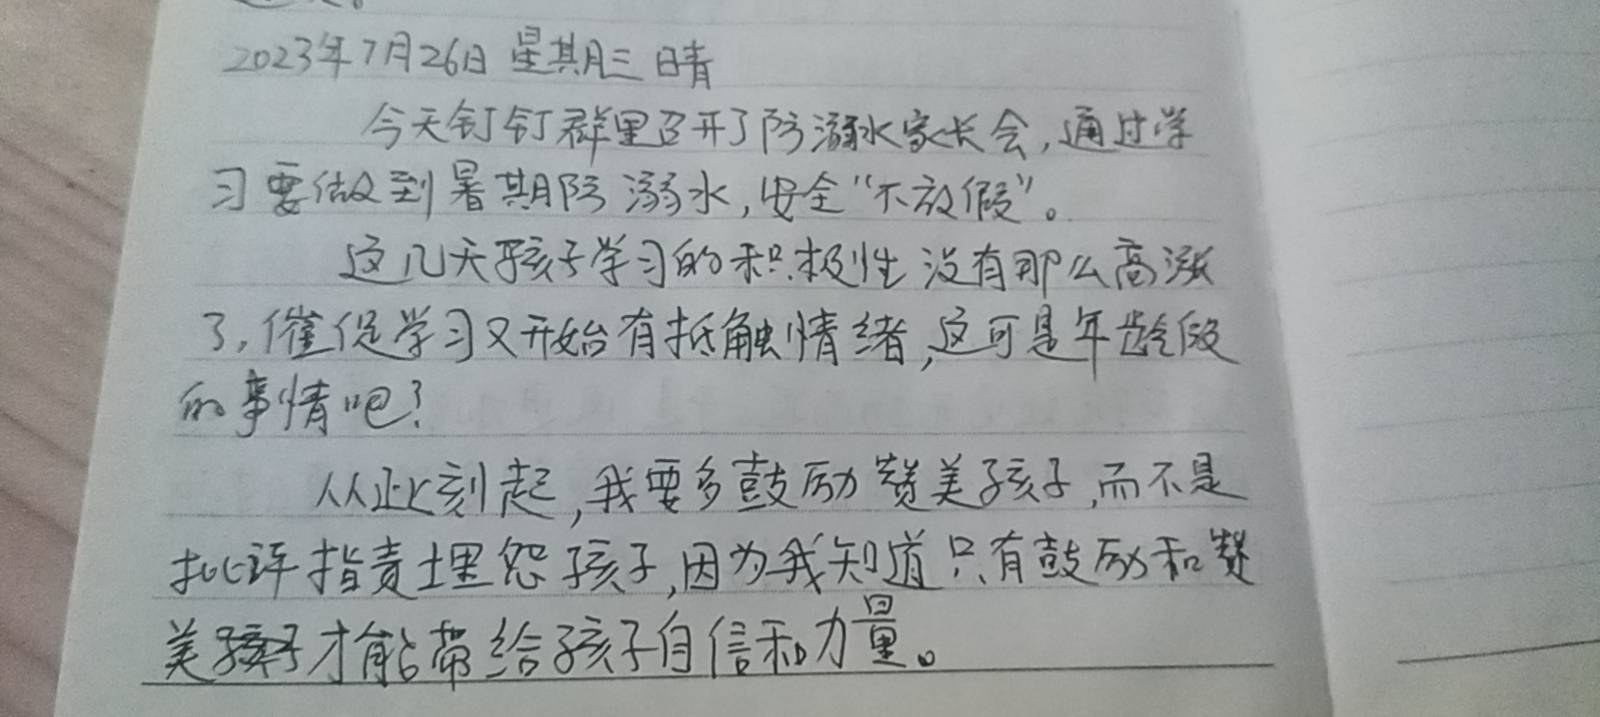 2023年7月26日 星期三 晴
今天钉钉群里召开了防溺水家长会,通过学
习要做到暑期防溺水,安全“不放假”。
这几天孩子学习的积极性没有那么高涨
了,催促学习又开始有抵触情绪,这可是年龄段
的事情吧?
从此刻起,我要多鼓励赞美孩子,而不是
批评指责埋怨孩子,因为我知道只有鼓励和赞
美孩子才能带给孩子自信和力量。